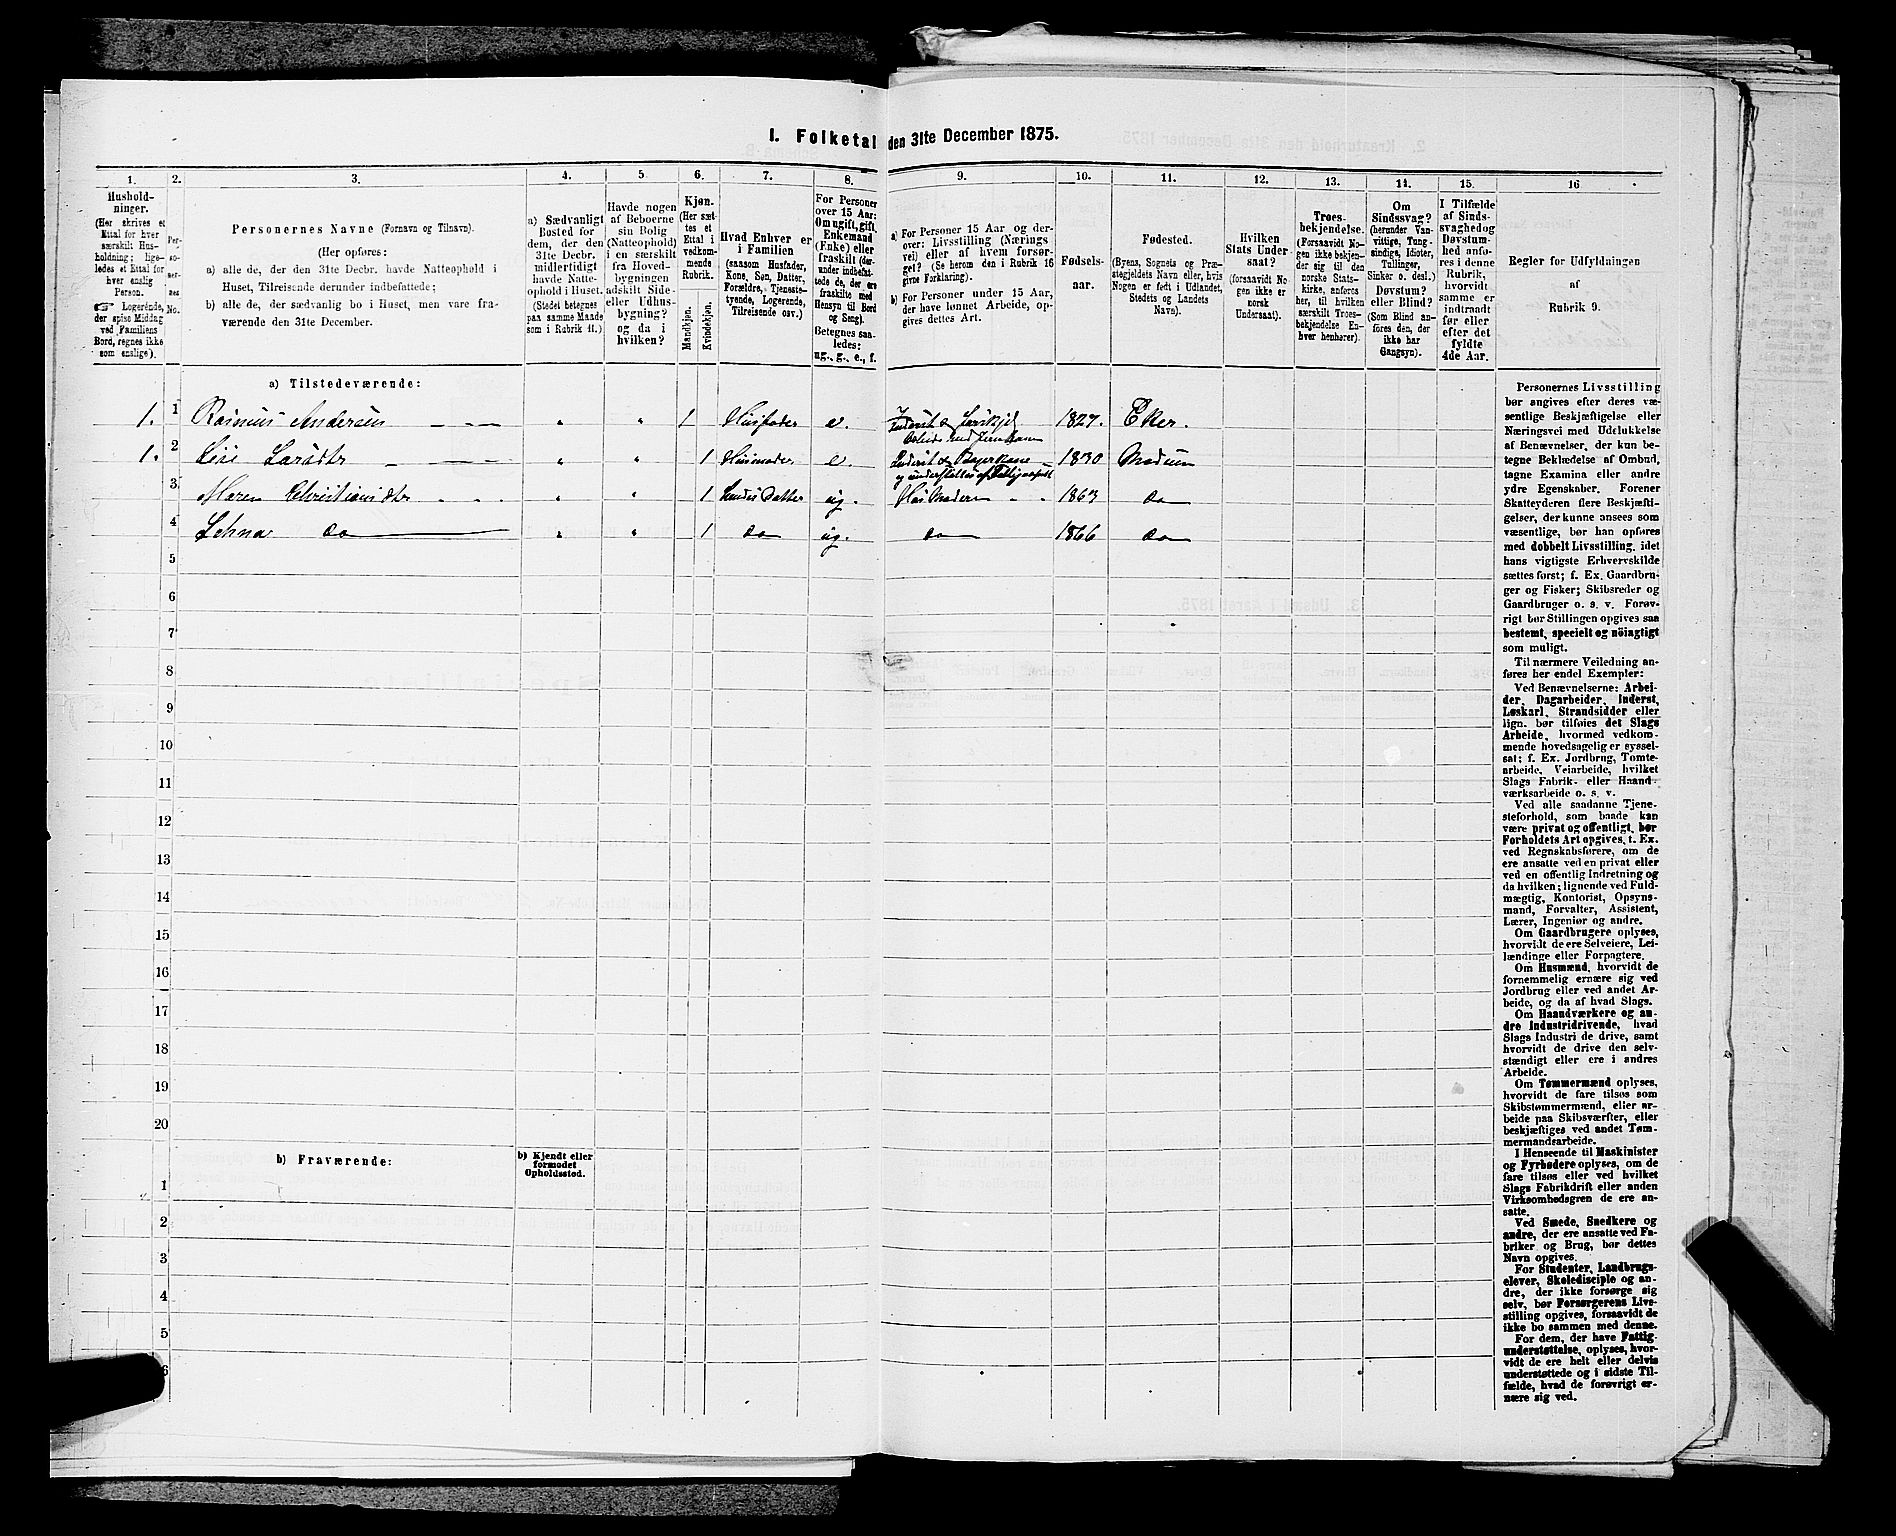 1. Folketal den 31te December 1875.
1.
Hushold-
ninger.
(Her skrives et
Ettal for hver
særskilt Hus-
holdning; lige-
ledes et Ettal for
hver enslig
Person.
Logerende,
der spise Middag
ved Familiens
Bord, regnes ikke
som enslige).
2.
Per-
so-
ner-
nes
No.
3.
Personernes Navne (Fornavn og Tilnavn).
(Her opføres:
a) alle de, der den 31te Decbr. havde Natteophold i
Huset, Tilreisende derunder indbefattede;
b) alle de, der sædvanlig bo i Huset, men vare fra-
værende den 31te December.
4.
a) Sædvanligt
Bosted for
dem, der den
31te Decbr.
midlertidigt
havde Natte-
ophold i Huset.
(Stedet betegnes
paa samme Maade
som i Rubrik 11.)
5.
Havde nogen
af Beboerne
sin Bolig
(Natteophold)
i en særskilt
fra Hoved-
bygningen
adskilt Side-
eller Udhus-
bygning?
og da i
hvilken?
6.
Kjøn.
(Her sæt-
tes et
Ettal i
vedkom-
mende
Rubrik.
Mandkjøn.
Kvindekjøn.
7.
Hvad Enhver er
i Familien
(saasom Husfader,
Kone, Søn, Datter,
Forældre, Tjeneste-
tyende, Logerende,
Tilreisende osv.)
8.
For Personer
over 15 Aar:
Om ugift, gift,
Enkemand
(Enke) eller
fraskilt (der-
under indbefat-
tede de, der ere
fraskilte med
Hensyn til Bord
og Seng).
Betegnes saa-
ledes:
ug., g., e., f.
9.
a) For Personer 15 Aar og der-
over: Livsstilling (Nærings
vei) eller af hvem forsør-
get? (Se herom den i Rubrik 16
givne Forklaring).
b) For Personer under 15 Aar,
der have lønnet Arbeide, op-
gives dettes Art.
10.
Fødsels-
aar.
11.
Fødested.
(Byens, Sognets og Præ-
stegjeldets Navn eller, hvis
Nogen er født i Udlandet,
Stedets og Landets
Navn).
12.
Hvilken
Stats Under-
saat?
(forsaavidt No-
gen ikke er
norsk
Undersaat).
13.
Troes-
bekjendelse.
(Forsaavidt No-
gen ikke bekjen-
der sig til den
norske Stats-
kirke, anføres
her, til hvilken
særskilt Troes-
bekjendelse En-
hver henhører).
14.
Om
Sindssvag?
(herunder Van-
vittige, Tung-
sindige, Idioter,
Tullinger,
Sinker o. desl.)
Døvstum?
eller Blind?
(Som Blind an-
føres den, der
ikke har
Gangsyn).
15.
I Tilfælde
af Sinds-
svaghed og
Døvstum-
hed anfø-
res i denne
Rubrik,
hvorvidt
samme er
indtraadt
før eller
efter det
fyldte
4de Aar.
16
Regler for Udfyldningen
af
Rubrik 9.
a) Tilstedeværende:
1. 1 Rasmus Andersen 1 Husfader e. Inderst & 1827. Eker.
Arbeide ved
1. 2 Lise Larsdtr 1 Husmoder e. Inderst & 1830 Modum
3 Maren Christiansdtr 1 Datter ug. Hos Moderen 1863 do
4 Lehna do 1 do ug. do 1866 do
5
6
7
8
9
10
11
12
13
14
15
16
17
18
19
20
b) Fraværende:
b) Kjendt eller
formodet
Opholdssted.
1
2
3
4
5
6
Personernes Livsstilling
bør angives efter deres væ-
sentlige Beskjæftigelse eller
Næringsvei med Udelukkelse
af Benævnelser, der kun be-
tegne Beklædelse af Ombud,
tagne Examina eller andre
ydre Egenskaber. Forener
Skatteyderen flere Beskjæfti-
gelser, der kunne ansees som
væsentlige, bør han opføres
med dobbelt Livsstilling, idet
hans vigtigste Erhvervskilde
sættes først; f. Ex. Gaardbru-
ger og Fisker; Skibsreder og
Gaardbruger o. s. v. Forøv-
rigt bør Stillingen opgives saa
bestemt, specielt og nøiagtigt
som muligt.
Til nærmere Veiledning an-
føres her endel Exempler:
Ved Benævnelserne: Arbei-
der, Dagarbeider, Inderst,
Løskarl, Strandsidder eller
lign. bør tilføies det Slags
Arbeide, hvormed vedkom-
mende hovedsagelig er syssel-
sat; f. Ex. Jordbrug, Tomte-
arbeide, Veiarbeide, hvilket
Slags Fabrik- eller Haand-
værksarbeide o. s. v.
Ved alle saadanne Tjene-
steforhold, som baade kan
være privat og offentligt, bør
Forholdets Art opgives, t. Ex.
ved Regnskabsførere, om de
ere ansatte ved en privat eller
ved en offentlig Indretning og
da hvilken; lignende ved Fuld-
mægtig, Kontorist, Opsyns-
mand, Forvalter, Assistent,
Lærer, Ingeniør og andre.
Om Gaardbrugere oplyses,
hvorvidt de ere Selveiere, Lei-
lændinge eller Forpagtere.
Om Husmænd, hvorvidt de
fornemmelig ernære sig ved
Jordbrug eller ved andet Ar-
beide, og da af hvad Slags.
Om Haandværkere og an-
dre Industridrivende, hvad
Slags Industri de drive, samt
hvorvidt de drive den selv-
stændigt eller ere i andres
Arbeide.
Om Tømmermænd oplyses,
hvorvidt de fare tilsøs som
Skibstømmermænd, eller ar-
beide paa Skibsværfter, eller
beskjæftiges ved andet Tøm-
mermandsarbeide.
I Henseende til Maskinister
og Fyrbødere oplyses, om de
fare tilsøs eller ved hvilket
Slags Fabrikdrift eller anden
Virksomhedsgren de ere an-
satte.
Ved Smede, Snedkere og
andre, der ere ansatte ved Fa-
briker og Brug, bør dettes
Navn opgives.
For Studenter, Landbrugs-
elever, Skoledisciple og an-
dre, der ikke forsørge sig
selv, bør Forsørgerens Livs-
stilling opgives, forsaavidt de
ikke bo sammen med denne.
For dem, der have Fattig-
understøttelse, oplyses, hvor-
vidt de ere helt eller delvis
understøttede og i sidste Til-
fælde, hvad de forøvrigt er-
nære sig ved.